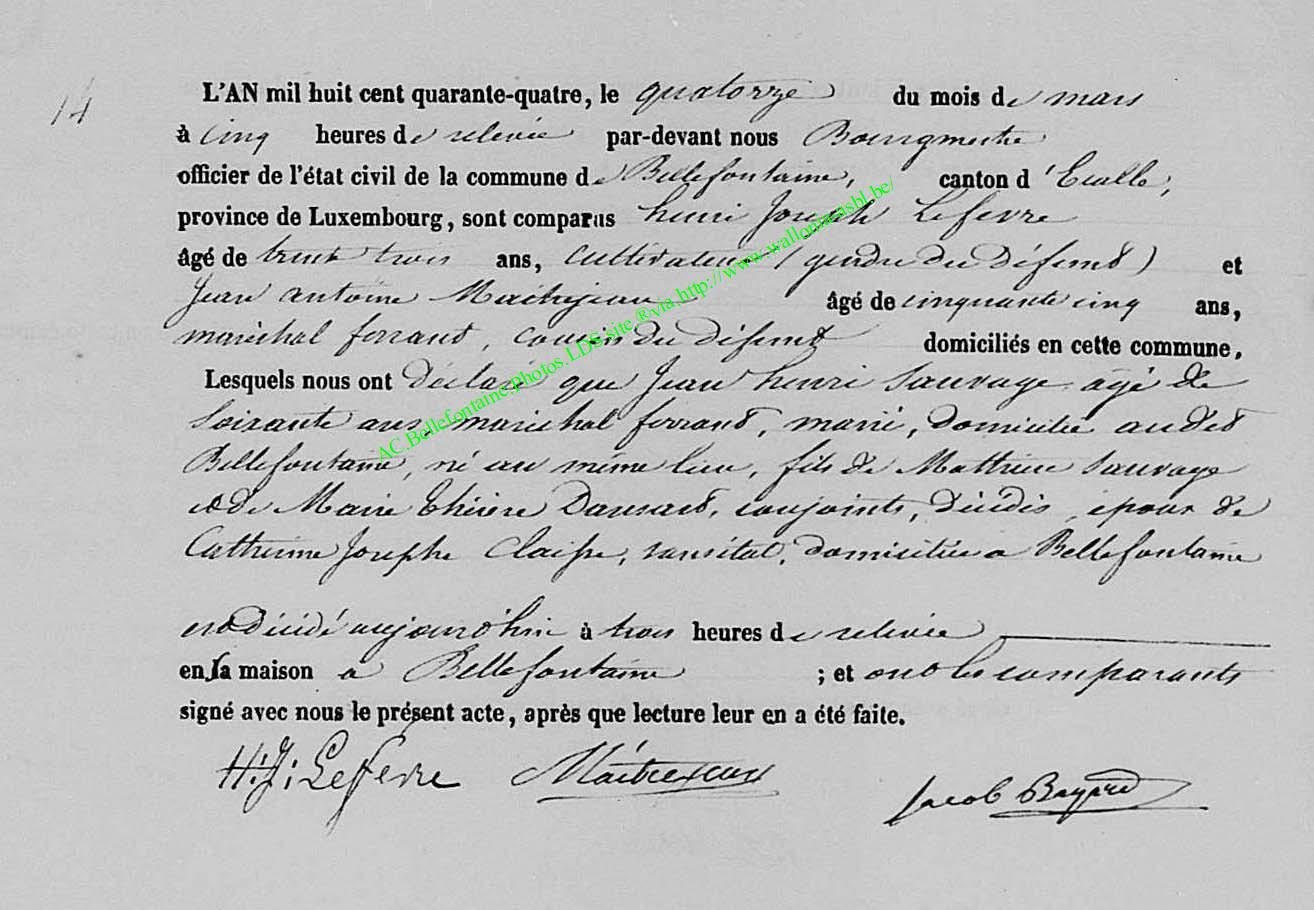 14
L'AN mil huit cent quarante-quatre, le quatorze du mois de mars
à cinq heures de relevée par-devant nous Bourgmestre
officier de l'état civil de la commune de Bellefontaine, canton d'Etalle,
province de Luxembourg, sont comparus henri Joseph Lefevre
âgé de trente trois ans, cultivateur (gendre du défunt) et
Jean antoine Maitrejean âgé de cinquante cinq ans,
maréchal ferrant, cousin du défunt domiciliés en cette commune.
Lesquels nous ont déclaré que Jean henri Sauvage agé de
soixante ans, maréchal ferrant, marié, domicilié audit
Bellefontaine, né au même lieu, fils de Matthieu Sauvage
et de Marie thérèse Dansart, conjoints, décédés, époux de
Catherine Josephe Claisse, sans état, domiciliée a Bellefontaine
est décédé aujourd'hui à trois heures de relevée
en sa maison a Bellefontaine ; et ont les comparants
signé avec nous le présent acte, après que lecture leur en a été faite.
H: J: Lefevre Maitrejean Jacob Bayard
AC.Bellefontaine.Photos.LDS.site.®via.http://www.walloniaasbl.be/